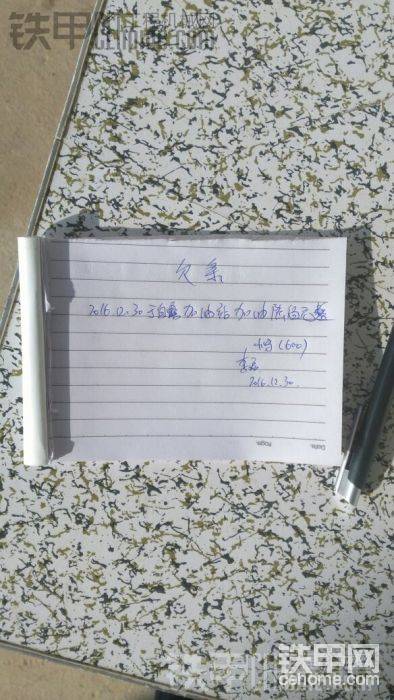 铁甲
工程机械网
cehome.com
欠条
2016.12.30 于加油站加油陆佰元整
(600)
2016.12.30.
Date.
Page.
铁甲网
cehome.com